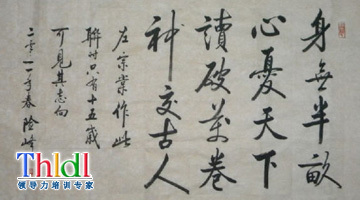 身無半畝
心憂天下
讀破萬卷
神交古人
左宗棠作此
聯時只有十五歲
可見其志向
二零一一年春 險峰
Thldl
领导力培训专家